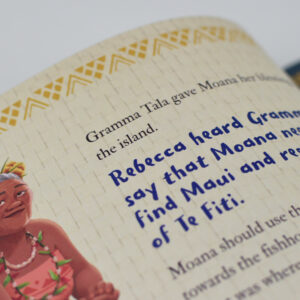 Gramma Tala gave Moana her
the island.
Rebecca heard Gramm
say that Moana
find Maui and
of Te Fiti.
Moana should use th
towards the fishho
was where